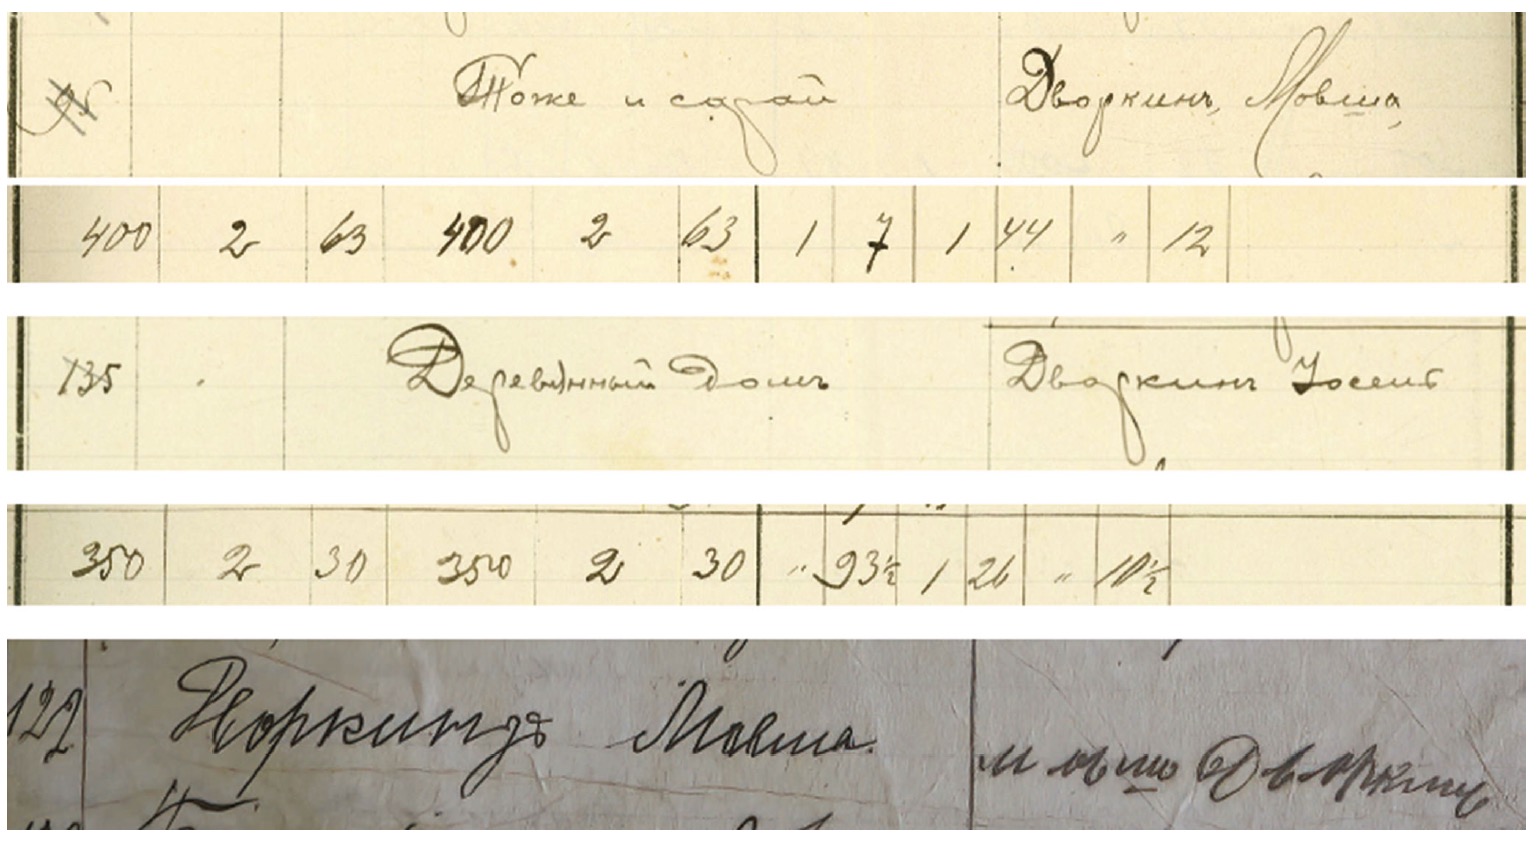 Тоже и сарай Дворкинъ, Мовша,
400 2 63 400 2 63 1 7 1 44 " 12
135 Деревянный домъ Дворкинъ Іосель
350 2 30 350 2 30 " 93½ 1 26 " 10½
122 Дворкиндъ Мовша.
Мовша Дворкинъ